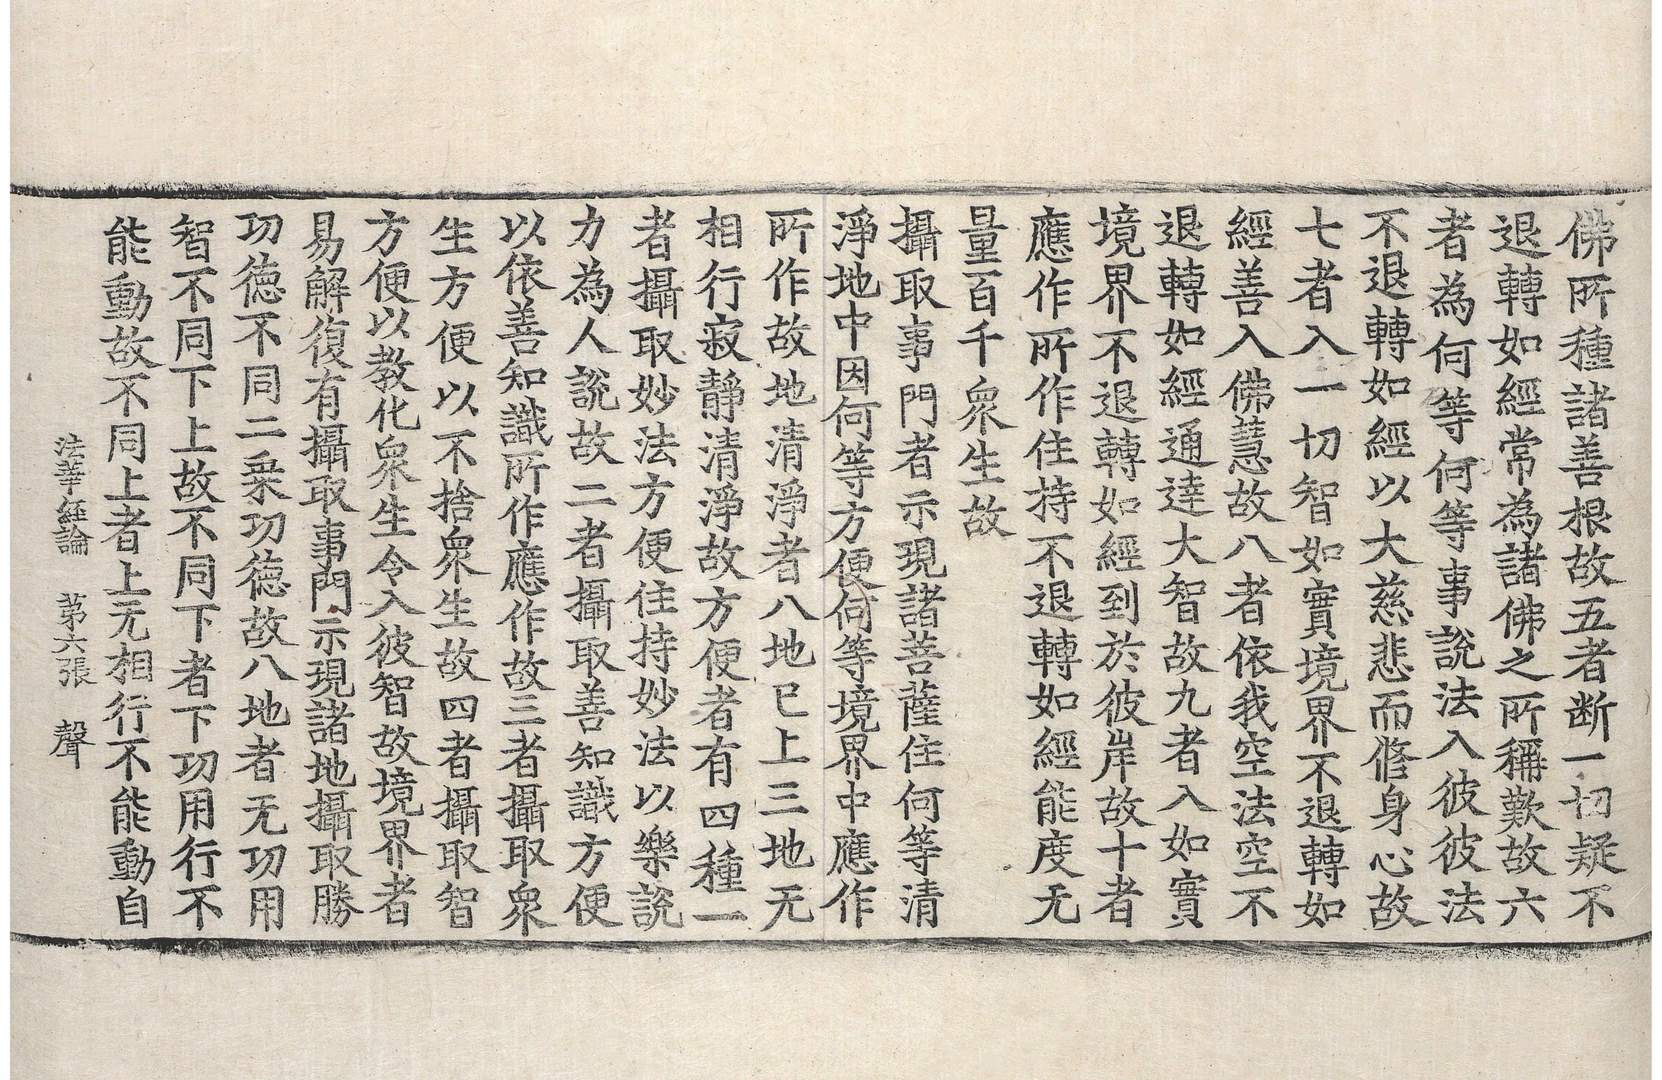 佛所種諸善根故五者断一切疑不
退轉如經常為諸佛之所稱歎故六
者為何等何等事說法入彼彼法
不退轉如經以大慈悲而脩身心故
七者入一切智如實境界不退轉如
經善入佛慧故八者依我空法空不
退轉如經通達大智故九者入如實
境界不退轉如經到於彼岸故十者
應作所作住持不退轉如經能度无
量百千衆生故
攝取事門者示現諸菩薩住何等清
淨地中因何等方便何等境界中應作
所作故地清淨者八地已上三地无
相行寂靜清淨故方便者有四種一
者攝取妙法方便住持妙法以樂說
力為人說故二者攝取善知識方便
以依善知識所作應作故三者攝取衆
生方便以不捨衆生故四者攝取智
方便以教化衆生令入彼智故境界者
易解復有攝取事門示現諸地攝取勝
功德不同二乗功德故八地者无功用
智不同下上故不同下者下功用行不
能動故不同上者上无相行不能動自
法華經論 苐六張 聲